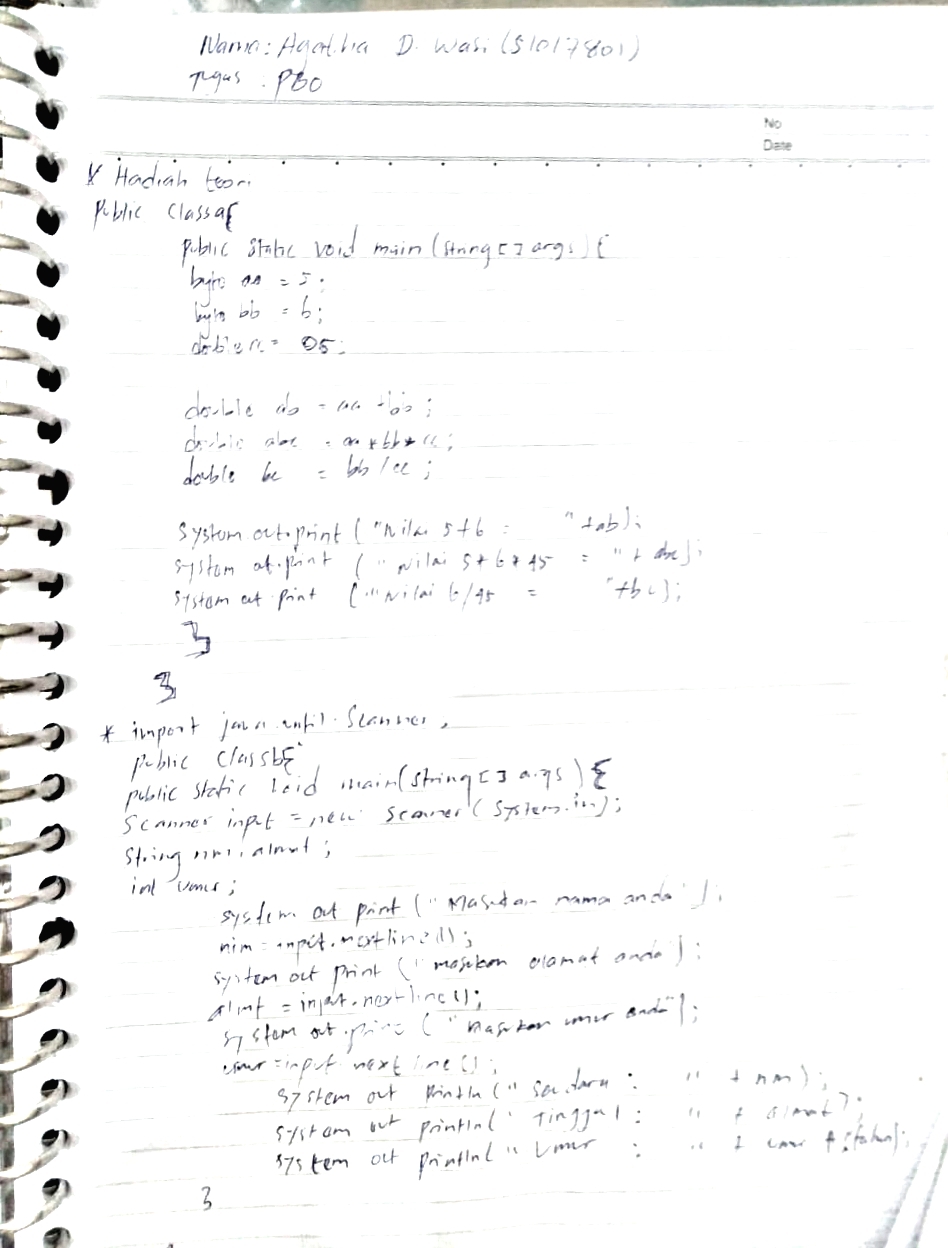 Nama: Agatha D. Wasi (51017801)
Tugas : PBO
No
Date
* Hadiah teori
Public Classa{
public static void main (string [ ] args) {
byte aa = 5;
byte bb = 6;
double cc = 05;
double ab = aa +bb ;
double abc = aa * bb * cc;
double bc = bb / cc ;
System out.print ( "Nilai 5+6 = " +ab);
system out.print ( " Nilai 5*6*45 = " + abc);
System out print ( "Nilai 6/45 = " +bc);
}
}
* import java.until.Scanner,
public Classb{
public static void main(string [ ] args) {
Scanner input = new Scanner ( System.in);
String nm, almat ;
int umur ;
system out print ( " Masukan nama anda" );
nim = input.nextline();
system out print ( " masukan alamat anda );
almt = input.nextline();
system out.print ( " Masukan umur anda");
umur =input next line ();
system out println (" Saudara : " + nm);
system out println( " Tinggal : " + almat);
system out println( " Umur : " + umur +
}